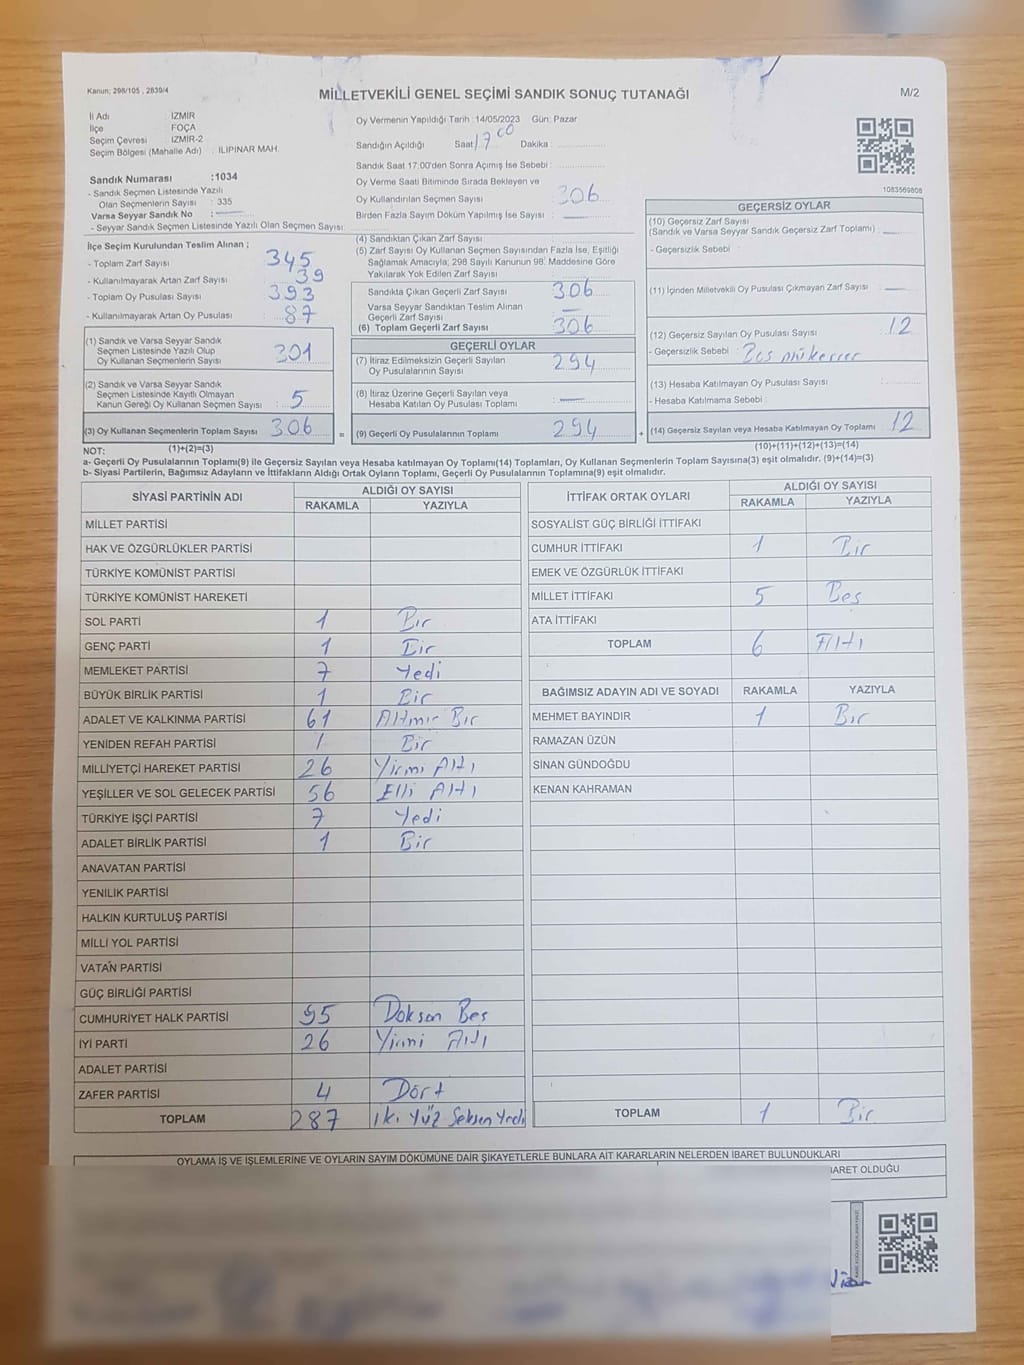 Kanun; 298/105 , 2839/4
MİLLETVEKİLİ GENEL SEÇİMİ SANDIK SONUÇ TUTANAĞI
M/2
İl Adı : İZMİR
İlçe : FOÇA
Seçim Çevresi : İZMİR-2
Seçim Bölgesi (Mahalle Adı) : ILIPINAR MAH.
Sandık Numarası :1034
- Sandık Seçmen Listesinde Yazılı
Olan Seçmenlerin Sayısı : 335
Varsa Seyyar Sandık No :
- Seyyar Sandık Seçmen Listesinde Yazılı Olan Seçmen Sayısı:
Oy Vermenin Yapıldığı Tarih : 14/05/2023 Gün: Pazar
Sandığın Açıldığı Saat 17 00 Dakika :
Sandık Saat 17:00'den Sonra Açımış İse Sebebi :
Oy Verme Saati Bitiminde Sırada Bekleyen ve
Oy Kullandırılan Seçmen Sayısı : 306
Birden Fazla Sayım Döküm Yapılmış İse Sayısı : —
1083569808
İlçe Seçim Kurulundan Teslim Alınan ;
- Toplam Zarf Sayısı : 345
- Kullanılmayarak Artan Zarf Sayısı : 39
- Toplam Oy Pusulası Sayısı : 393
- Kullanılmayarak Artan Oy Pusulası : 87
(1) Sandık ve Varsa Seyyar Sandık
Seçmen Listesinde Yazılı Olup
Oy Kullanan Seçmenlerin Sayısı : 301
(2) Sandık ve Varsa Seyyar Sandık
Seçmen Listesinde Kayıtlı Olmayan
Kanun Gereği Oy Kullanan Seçmen Sayısı : 5
(3) Oy Kullanan Seçmenlerin Toplam Sayısı : 306
(1)+(2)=(3)
(4) Sandıktan Çıkan Zarf Sayısı :
(5) Zarf Sayısı Oy Kullanan Seçmen Sayısından Fazla İse, Eşitliği
Sağlamak Amacıyla; 298 Sayılı Kanunun 98. Maddesine Göre
Yakılarak Yok Edilen Zarf Sayısı :
Sandıkta Çıkan Geçerli Zarf Sayısı : 306
Varsa Seyyar Sandıktan Teslim Alınan
Geçerli Zarf Sayısı : —
(6) Toplam Geçerli Zarf Sayısı : 306
GEÇERLİ OYLAR
(7) İtiraz Edilmeksizin Geçerli Sayılan
Oy Pusulalarının Sayısı : 294
(8) İtiraz Üzerine Geçerli Sayılan veya
Hesaba Katılan Oy Pusulası Toplamı : —
= (9) Geçerli Oy Pusulalarının Toplamı : 294
GEÇERSİZ OYLAR
(10) Geçersiz Zarf Sayısı
(Sandık ve Varsa Seyyar Sandık Geçersiz Zarf Toplamı) : —
- Geçersizlik Sebebi :
(11) İçinden Milletvekili Oy Pusulası Çıkmayan Zarf Sayısı : —
(12) Geçersiz Sayılan Oy Pusulası Sayısı : 12
- Geçersizlik Sebebi : Boş mükerrer
(13) Hesaba Katılmayan Oy Pusulası Sayısı :
- Hesaba Katılmama Sebebi :
+ (14) Geçersiz Sayılan veya Hesaba Katılmayan Oy Toplamı : 12
(10)+(11)+(12)+(13)=(14)
NOT:
a- Geçerli Oy Pusulalarının Toplamı(9) ile Geçersiz Sayılan veya Hesaba katılmayan Oy Toplamı(14) Toplamları, Oy Kullanan Seçmenlerin Toplam Sayısına(3) eşit olmalıdır. (9)+(14)=(3)
b- Siyasi Partilerin, Bağımsız Adayların ve İttifakların Aldığı Ortak Oyların Toplamı, Geçerli Oy Pusulalarının Toplamına(9) eşit olmalıdır.
SİYASİ PARTİNİN ADI ALDIĞI OY SAYISI
RAKAMLA YAZIYLA
MİLLET PARTİSİ
HAK VE ÖZGÜRLÜKLER PARTİSİ
TÜRKİYE KOMÜNİST PARTİSİ
TÜRKİYE KOMÜNİST HAREKETİ
SOL PARTİ 1 Bir
GENÇ PARTİ 1 Bir
MEMLEKET PARTİSİ 7 Yedi
BÜYÜK BİRLİK PARTİSİ 1 Bir
ADALET VE KALKINMA PARTİSİ 61 Altmış Bir
YENİDEN REFAH PARTİSİ 1 Bir
MİLLİYETÇİ HAREKET PARTİSİ 26 Yirmi Altı
YEŞİLLER VE SOL GELECEK PARTİSİ 56 Elli Altı
TÜRKİYE İŞÇİ PARTİSİ 7 Yedi
ADALET BİRLİK PARTİSİ 1 Bir
ANAVATAN PARTİSİ
YENİLİK PARTİSİ
HALKIN KURTULUŞ PARTİSİ
MİLLİ YOL PARTİSİ
VATAN PARTİSİ
GÜÇ BİRLİĞİ PARTİSİ
CUMHURİYET HALK PARTİSİ 95 Doksan Beş
İYİ PARTİ 26 Yirmi Altı
ADALET PARTİSİ
ZAFER PARTİSİ 4 Dört
TOPLAM 287 İki Yüz Seksen Yedi
İTTİFAK ORTAK OYLARI ALDIĞI OY SAYISI
RAKAMLA YAZIYLA
SOSYALİST GÜÇ BİRLİĞİ İTTİFAKI
CUMHUR İTTİFAKI 1 Bir
EMEK VE ÖZGÜRLÜK İTTİFAKI
MİLLET İTTİFAKI 5 Beş
ATA İTTİFAKI
TOPLAM 6 Altı
BAĞIMSIZ ADAYIN ADI VE SOYADI RAKAMLA YAZIYLA
MEHMET BAYINDIR 1 Bir
RAMAZAN ÜZÜN
SİNAN GÜNDOĞDU
KENAN KAHRAMAN
TOPLAM 1 Bir
OYLAMA İŞ VE İŞLEMLERİNE VE OYLARIN SAYIM DÖKÜMÜNE DAİR ŞİKAYETLERLE BUNLARA AİT KARARLARIN NELERDEN İBARET BULUNDUKLARI
BARET OLDUĞU